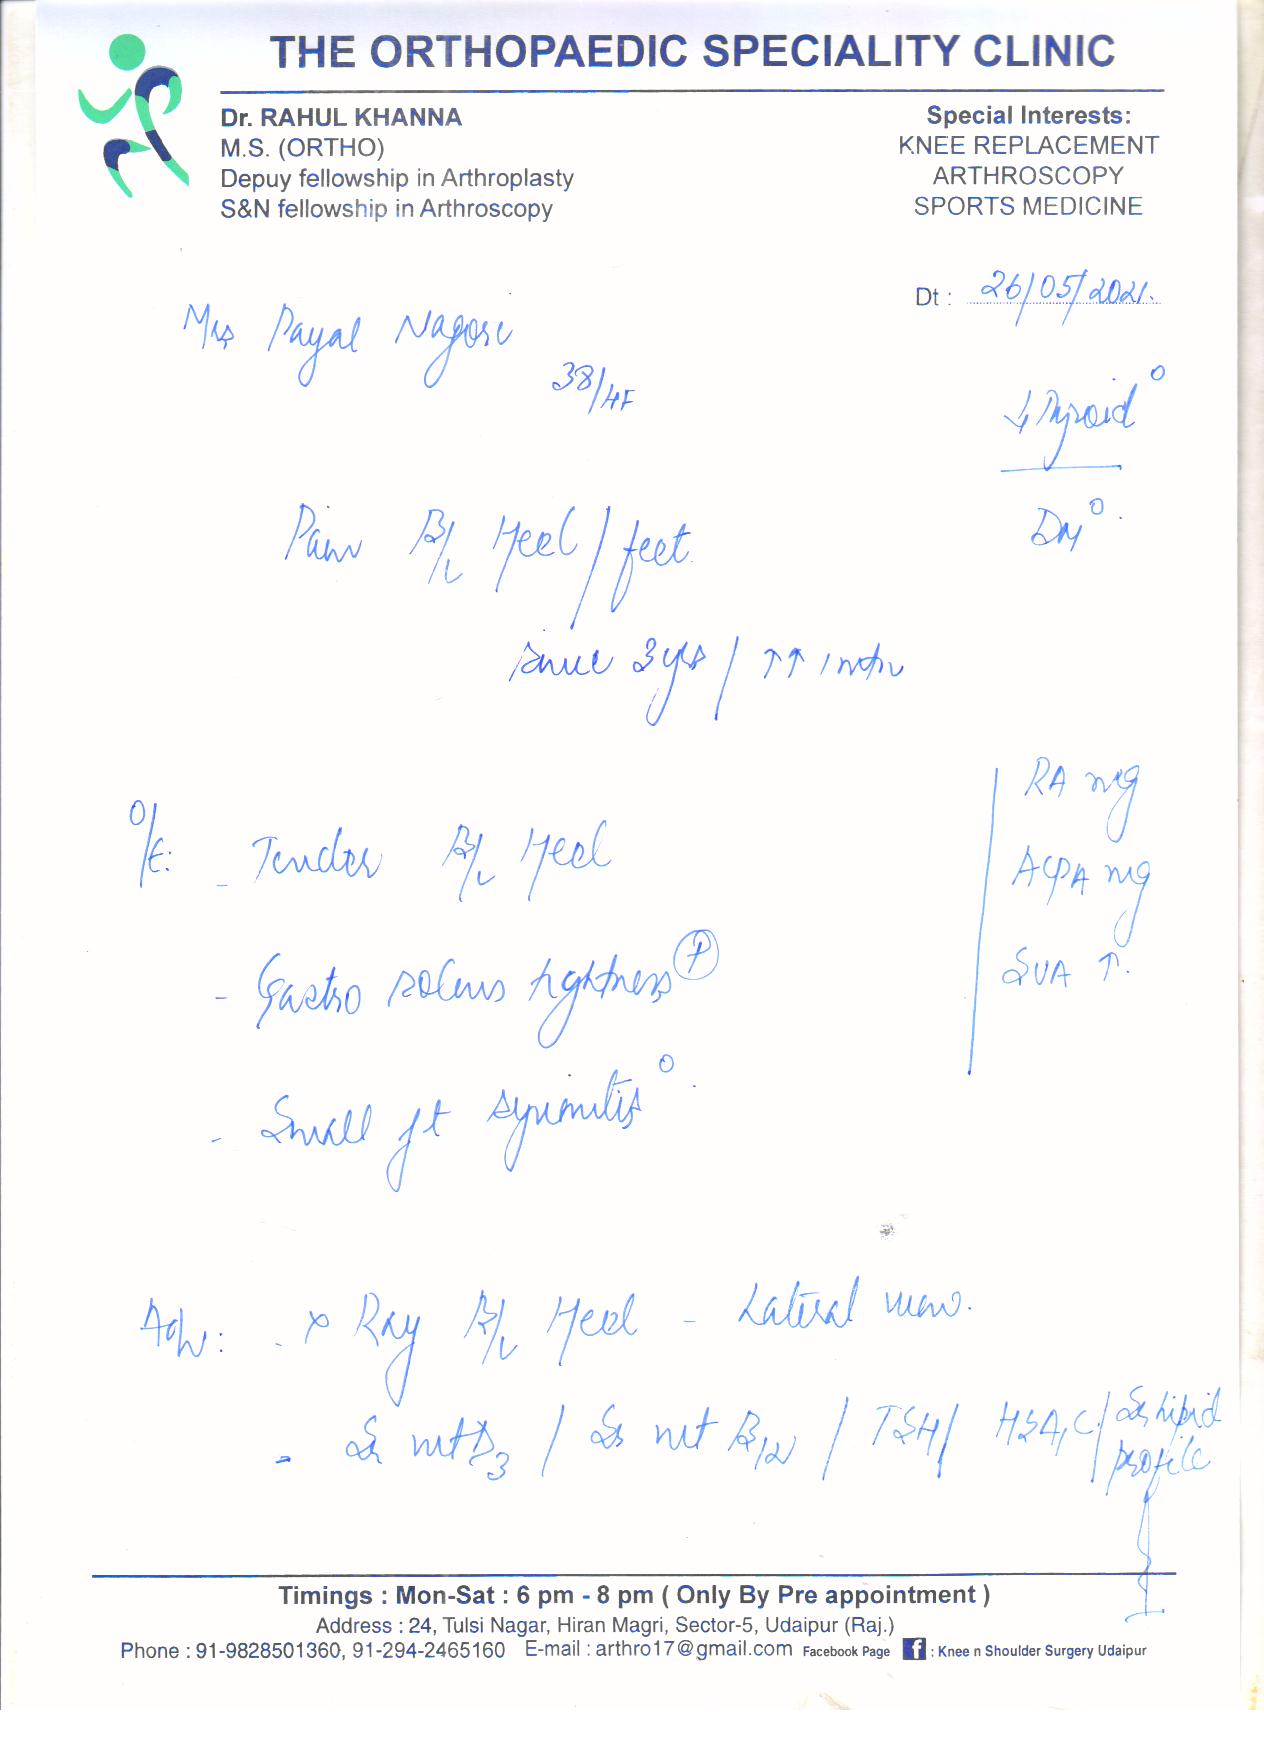 THE ORTHOPAEDIC SPECIALITY CLINIC
Dr. RAHUL KHANNA
M.S. (ORTHO)
Depuy fellowship in Arthroplasty
S&N fellowship in Arthroscopy
Special Interests:
KNEE REPLACEMENT
ARTHROSCOPY
SPORTS MEDICINE
Dt : 26/05/2021.
Mrs Payal Nagori
38/F
↓ Thyroid °
DM °
Pain B/L Heel / feet
since 3 yrs / ↑↑ 1 mth
O/E: - Tender B/L Heel
- Gastro soleus tightness +
- Small jt synovitis °
RA neg
ACPA neg
SUA ↑.
Adv: - X Ray B/L Heel - Lateral view.
- Sr Vit D3 / Sr Vit B12 / TSH / HBA1C / Sr Lipid profile
Timings : Mon-Sat : 6 pm - 8 pm ( Only By Pre appointment )
Address : 24, Tulsi Nagar, Hiran Magri, Sector-5, Udaipur (Raj.)
Phone : 91-9828501360, 91-294-2465160 E-mail : arthro17@gmail.com Facebook Page f : Knee n Shoulder Surgery Udaipur